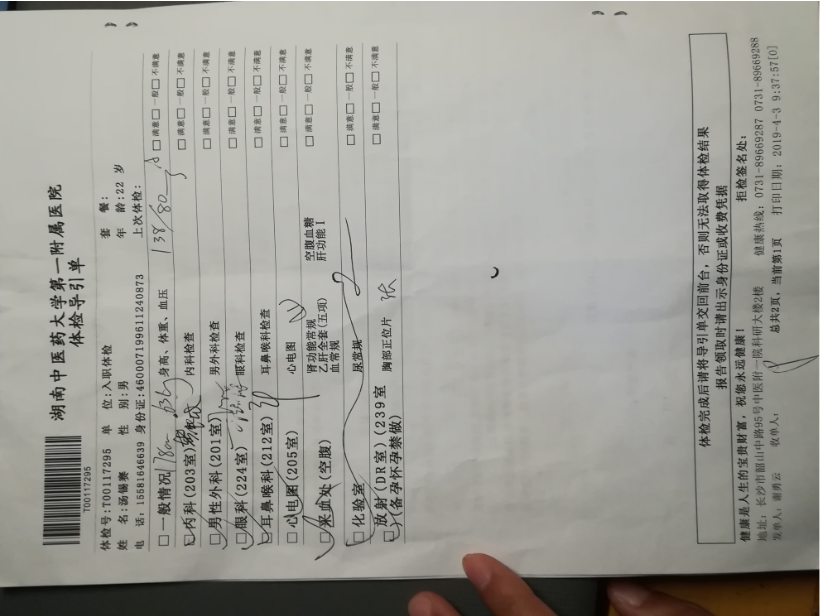 T00117295
湖南中医药大学第一附属医院
体检导引单
体检号:T00117295 单 位:入职体检 套 餐:
姓 名:汤儼赛 性 别:男 年 龄:22 岁
电 话:15581646639 身份证:460007199611240873 上次体检:
□一般情况 178cm 63kg 身高、体重、血压 138/80 □ 满意□ 一般□ 不满意
□内科(203室) 内科检查 □ 满意□ 一般□ 不满意
□男性外科(201室) 男外科检查 □ 满意□ 一般□ 不满意
□眼科(224室) 眼科检查 □ 满意□ 一般□ 不满意
□耳鼻喉科(212室) 耳鼻喉科检查 □ 满意□ 一般□ 不满意
□心电图(205室) 心电图 □ 满意□ 一般□ 不满意
□采血处(空腹) 肾功能常规 空腹血糖 □ 满意□ 一般□ 不满意
乙肝全套(五项) 肝功能Ⅰ
血常规
□化验室 尿常规 □ 满意□ 一般□ 不满意
□放射(DR室)(239室 胸部正位片 张 □ 满意□ 一般□ 不满意
)(备孕怀孕禁做)
体检完成后请将导引单交回前台,否则无法取得体检结果
报告领取时请出示身份证或收费凭据
健康是人生的宝贵财富,祝您永远健康! 拒检签名处:
地址:长沙市韶山中路95号中医附一院科研大楼2楼 健康热线:0731-89669287 0731-89669288
发单人:谢勇云 收单人: 总共2页,当前第1页 打印日期:2019-4-3 9:37:57[0]